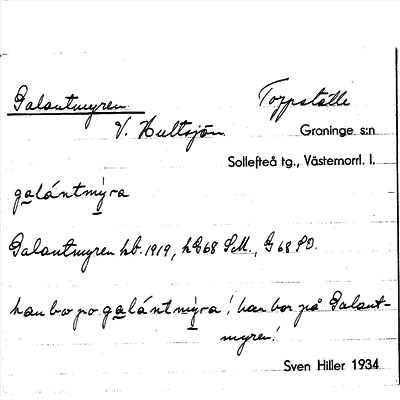 Galantmyren Torpställe
V. Hultsjön Graninge s:n
Sollefteå tg., Västernorrl. l.
galántmỳra
Galantmyren hb. 1919, hG68 SM., G 68 SO.
han bor po galántmỳra! han bor på Galant-
myren!
Sven Hiller 1934